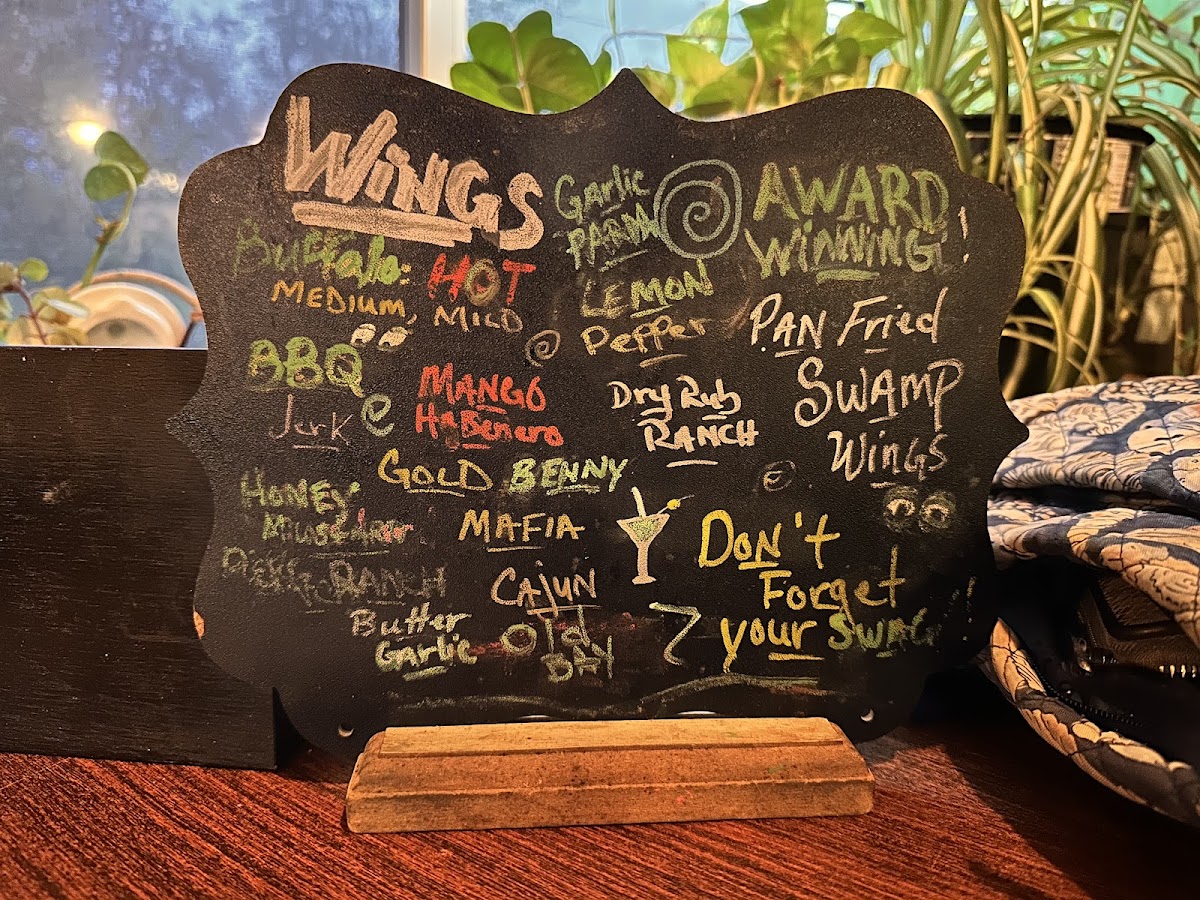 WiNGS
Buffalo: HOT
MEDIUM, MILD
BBQ
Jerk
MANGO
HABenero
GOLD BENNY
HONEY
MAFIA
RANCH
CAJUN
Butter
Garlic
Old
BAY
Garlic
PARM
LEMON
Pepper
Dry Rub
RANCH
AWARD
WiNNiNG!
PAN Fried
SWAMP
WiNGS
DoN't
Forget
your SWAG!